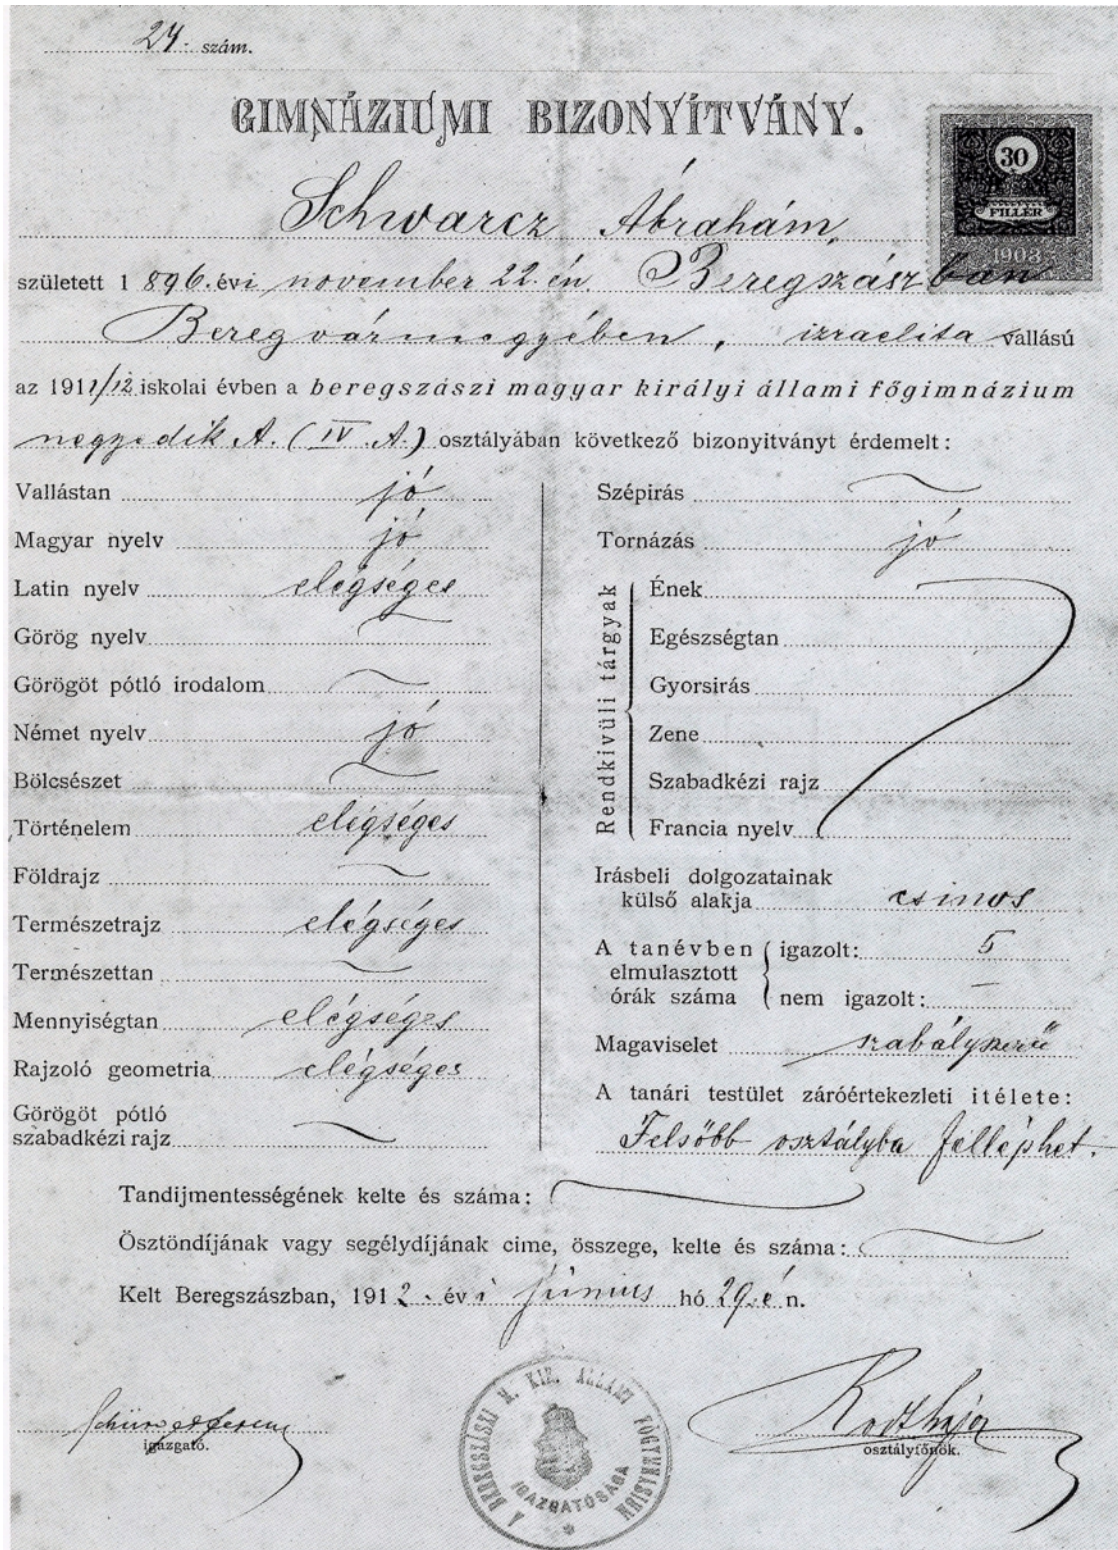 24. szám.
GIMNÁZIUMI BIZONYÍTVÁNY.
30
FILLÉR
1903
Schwarcz Ábrahám,
született 1896. évi november 22.-én. Beregszászban
Beregvármegyében, izraelita vallású
az 1911/12. iskolai évben a beregszászi magyar királyi állami főgimnázium
negyedik A. (IV. A.) osztályában következő bizonyitványt érdemelt:
Vallástan jó
Magyar nyelv jó
Latin nyelv elégséges
Görög nyelv
Görögöt pótló irodalom
Német nyelv jó
Bölcsészet
Történelem elégséges
Földrajz
Természetrajz elégséges
Természettan
Mennyiségtan elégséges
Rajzoló geometria elégséges
Görögöt pótló
szabadkézi rajz
Szépirás
Tornázás jó
Rendkivüli tárgyak
Ének
Egészségtan
Gyorsirás
Zene
Szabadkézi rajz
Francia nyelv
Irásbeli dolgozatainak
külső alakja csinos
A tanévben igazolt: 5
elmulasztott
órák száma nem igazolt: —
Magaviselet szabályszerű
A tanári testület záróértekezleti itélete:
Felsőbb osztályba felléphet.
Tandijmentességének kelte és száma:
Ösztöndíjának vagy segélydíjának cime, összege, kelte és száma:
Kelt Beregszászban, 1912. évi június hó 29.-én.
igazgató.
osztályfőnök.
A BEREGSZÁSZI M. KIR. ÁLLAMI FŐGYMNASIUM
IGAZGATÓSÁGA